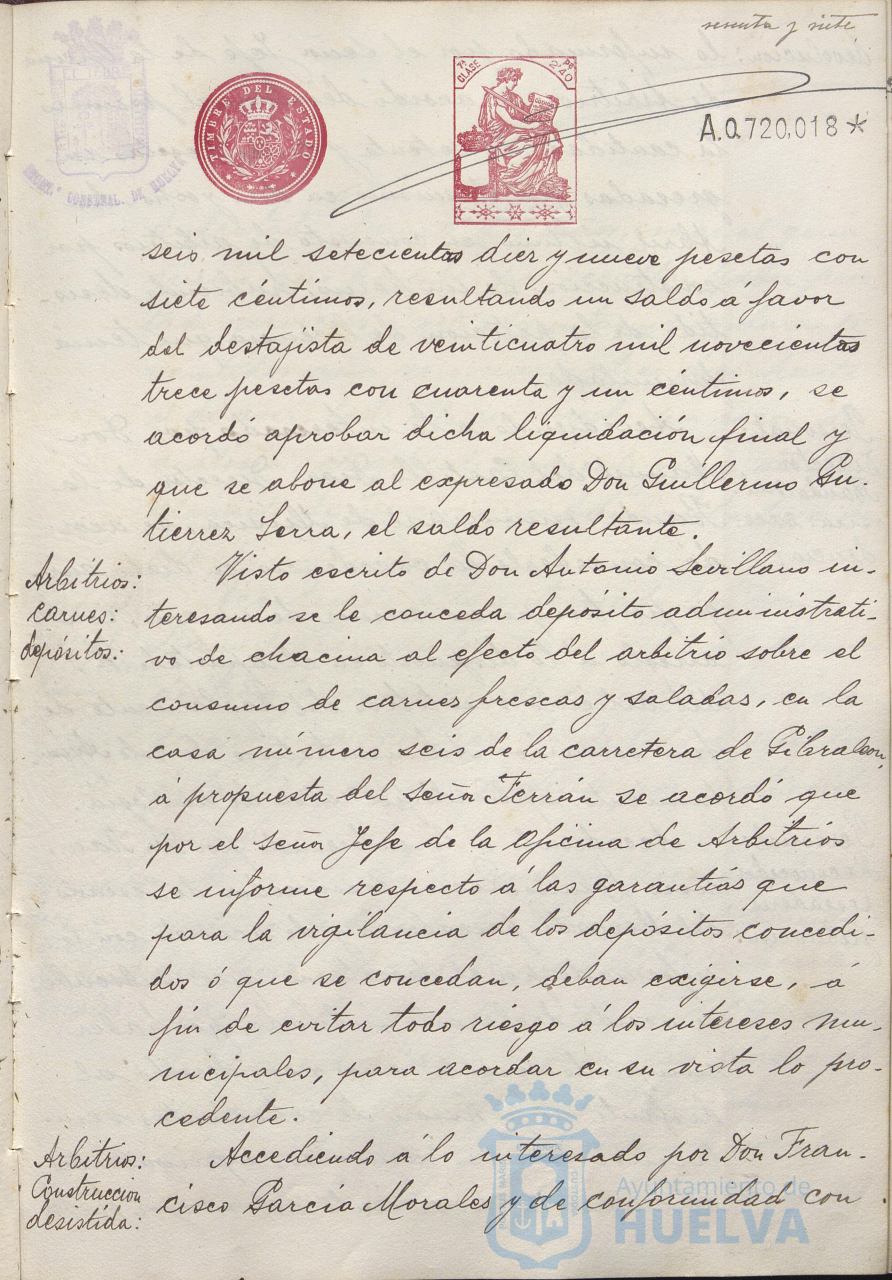 sesenta y siete
TIMBRE DEL ESTADO
7ª CLASE
240
A.0.720,018*
seis mil setecientas diez y nueve pesetas con
siete céntimos, resultando un saldo á favor
del destajista de veinticuatro mil novecientas
trece pesetas con cuarenta y un céntimos, se
acordó aprobar dicha liquidación final y
que se abone al expresado Don Guillermo Gu-
tierrez Serra, el saldo resultante.
Arbitrios:
carnes:
depósitos:
Visto escrito de Don Antonio Sevillano in-
teresando se le conceda depósito administrati-
vo de chacina al efecto del arbitrio sobre el
consumo de carnes frescas y saladas, en la
casa número seis de la carretera de Gibraleon,
á propuesta del señor Terrán se acordó que
por el señor Jefe de la Oficina de Arbitrios
se informe respecto á las garantías que
para la vigilancia de los depósitos concedi-
dos ó que se concedan, deban exigirse, á
fin de evitar todo riesgo á los intereses mu-
nicipales, para acordar en su vista lo pro-
cedente.
Arbitrios:
Construccion
desistida:
Accediendo á lo interesado por Don Fran-
cisco García Morales y de conformidad con
Ayuntamiento de
HUELVA